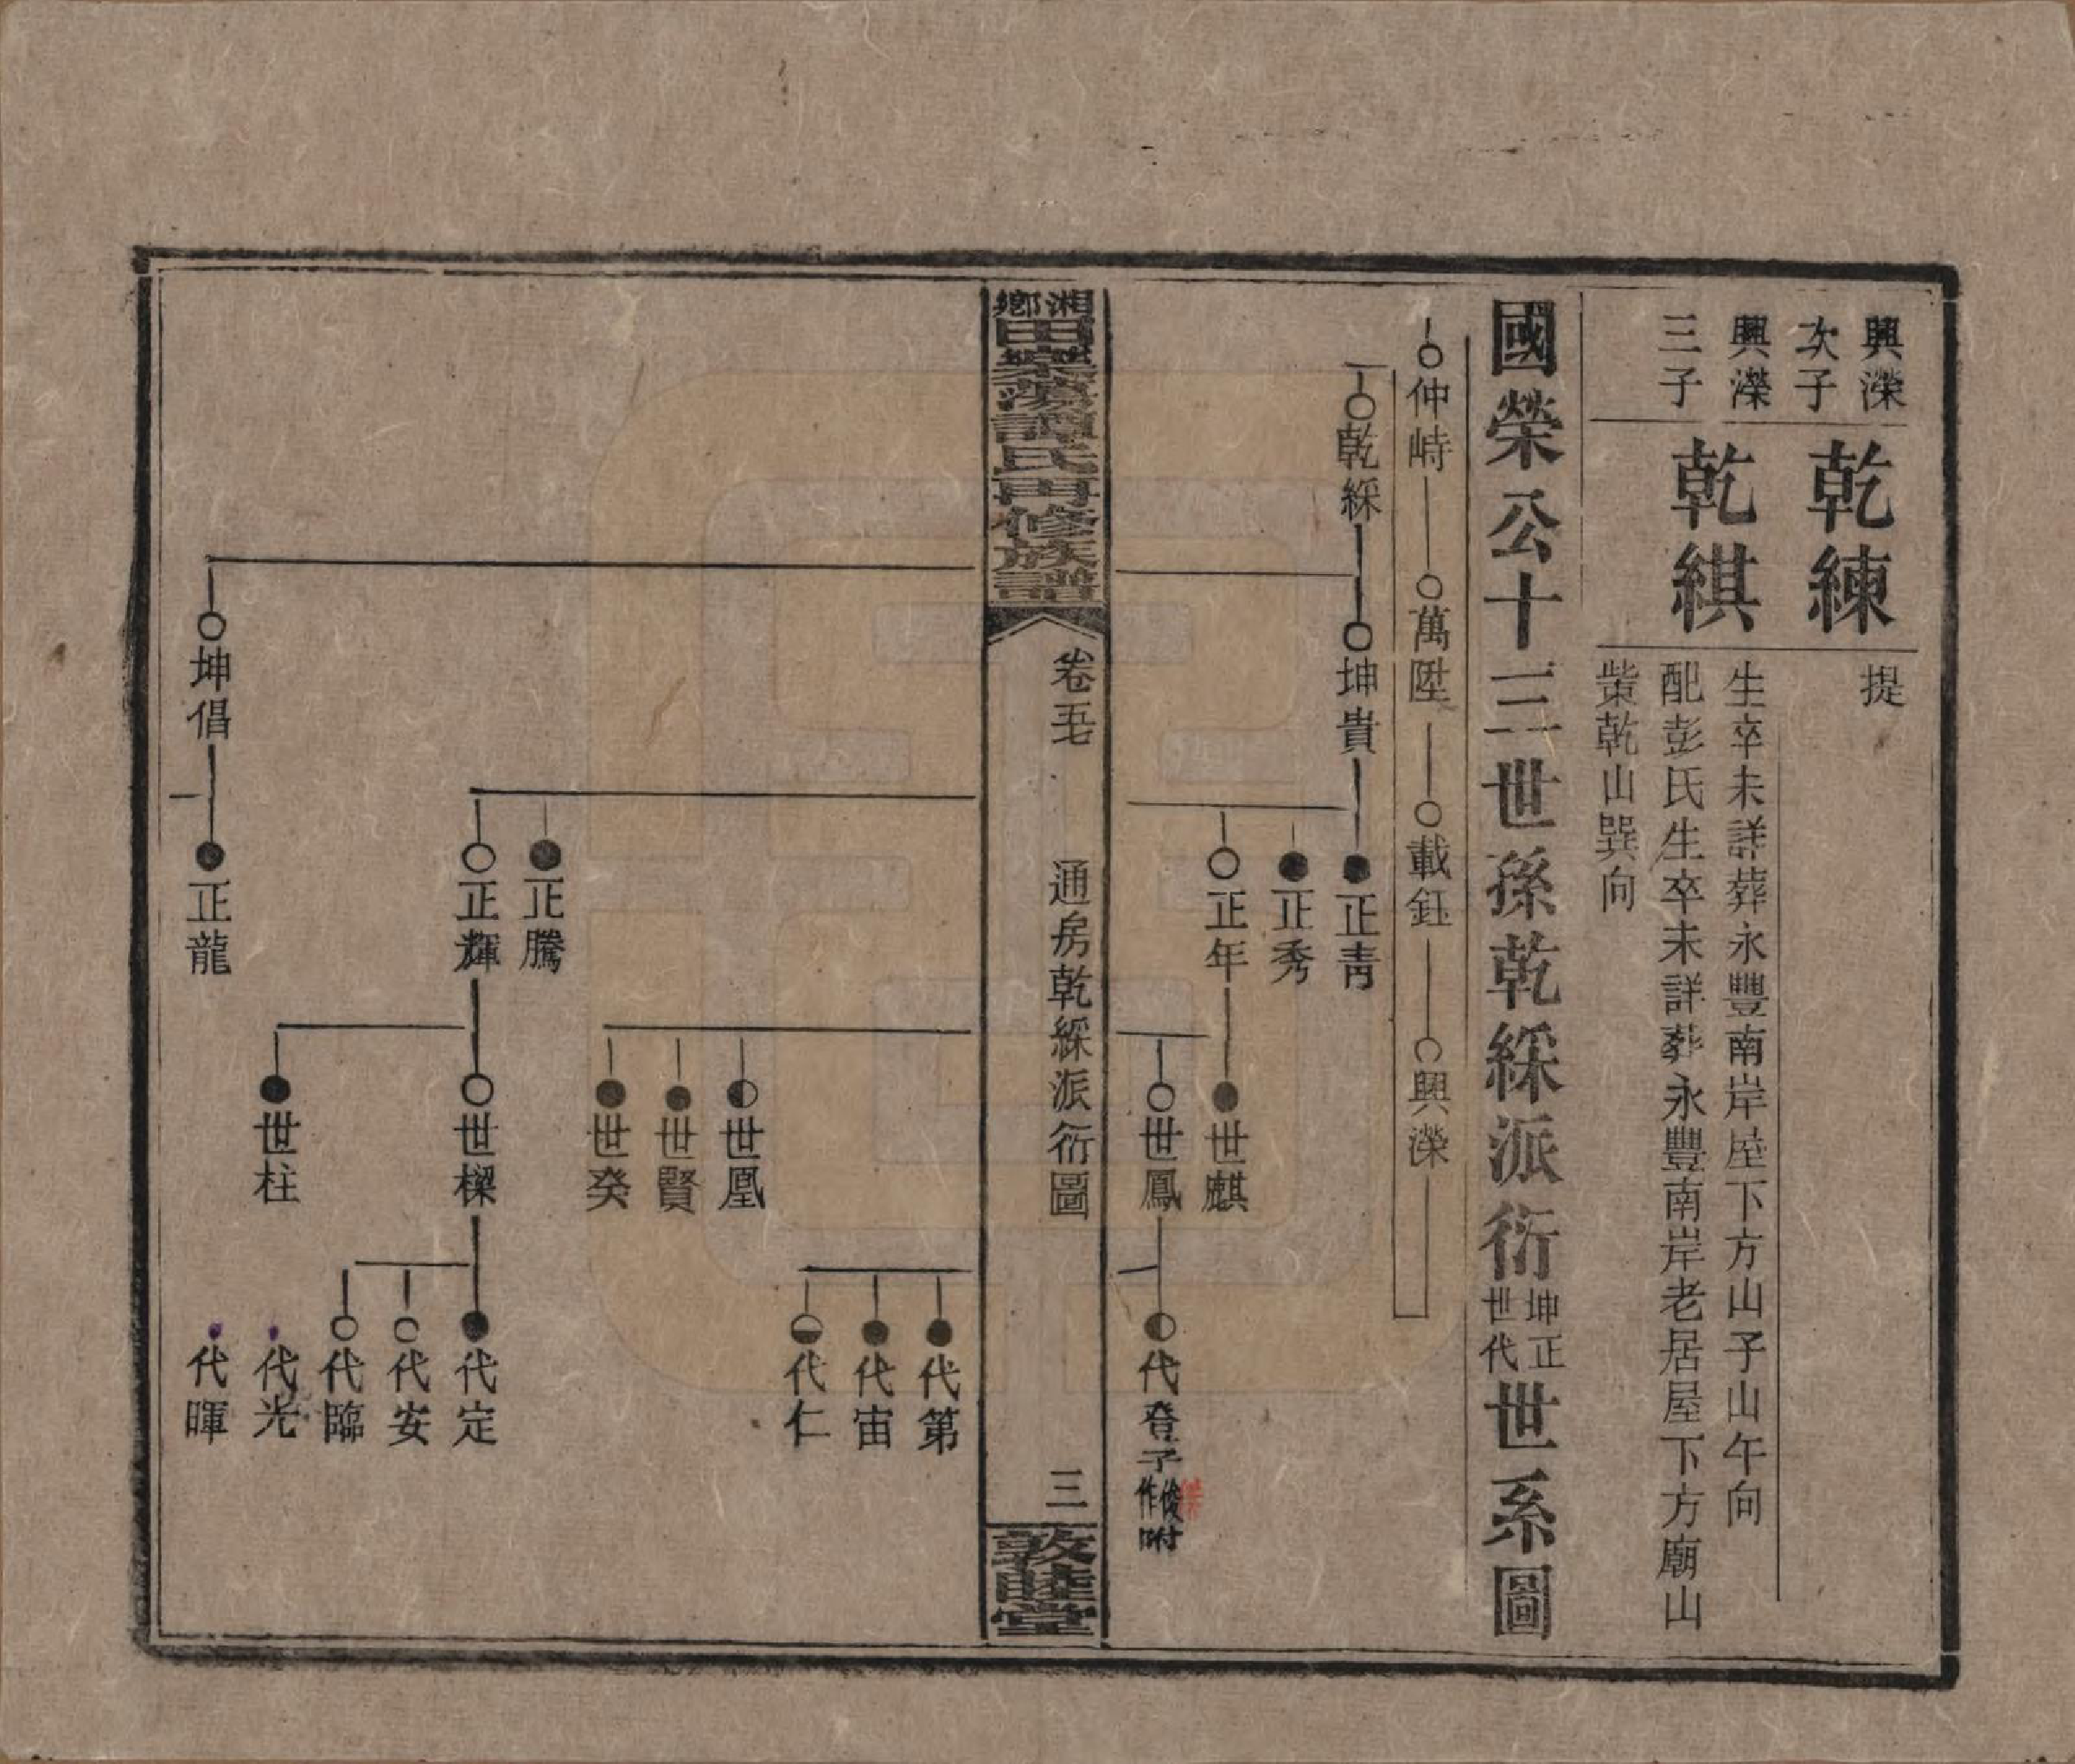 興濚次子
乾練
提
興濚三子
乾綨
生卒未詳葬永豐南岸屋下方山子山午向
配彭氏生卒未詳葬永豐南岸老居屋下方廟山
柴乾山巽向
國榮公十三世孫乾綵派衍坤正世代世系圖
仲峙 萬陞 載鈺 興濚
乾綵 坤貴 正青
正秀
世麒
正年
世鳳 代登子俊作附
湘鄉田 譚氏再修族譜
卷五 通房乾綵派衍圖 三
敦睦堂
代第
代宙
代仁
世凰
世賢
世癸
正騰
正輝 世樑 代定
代安
代臨
世柱
代光
坤倡 正龍
代暉